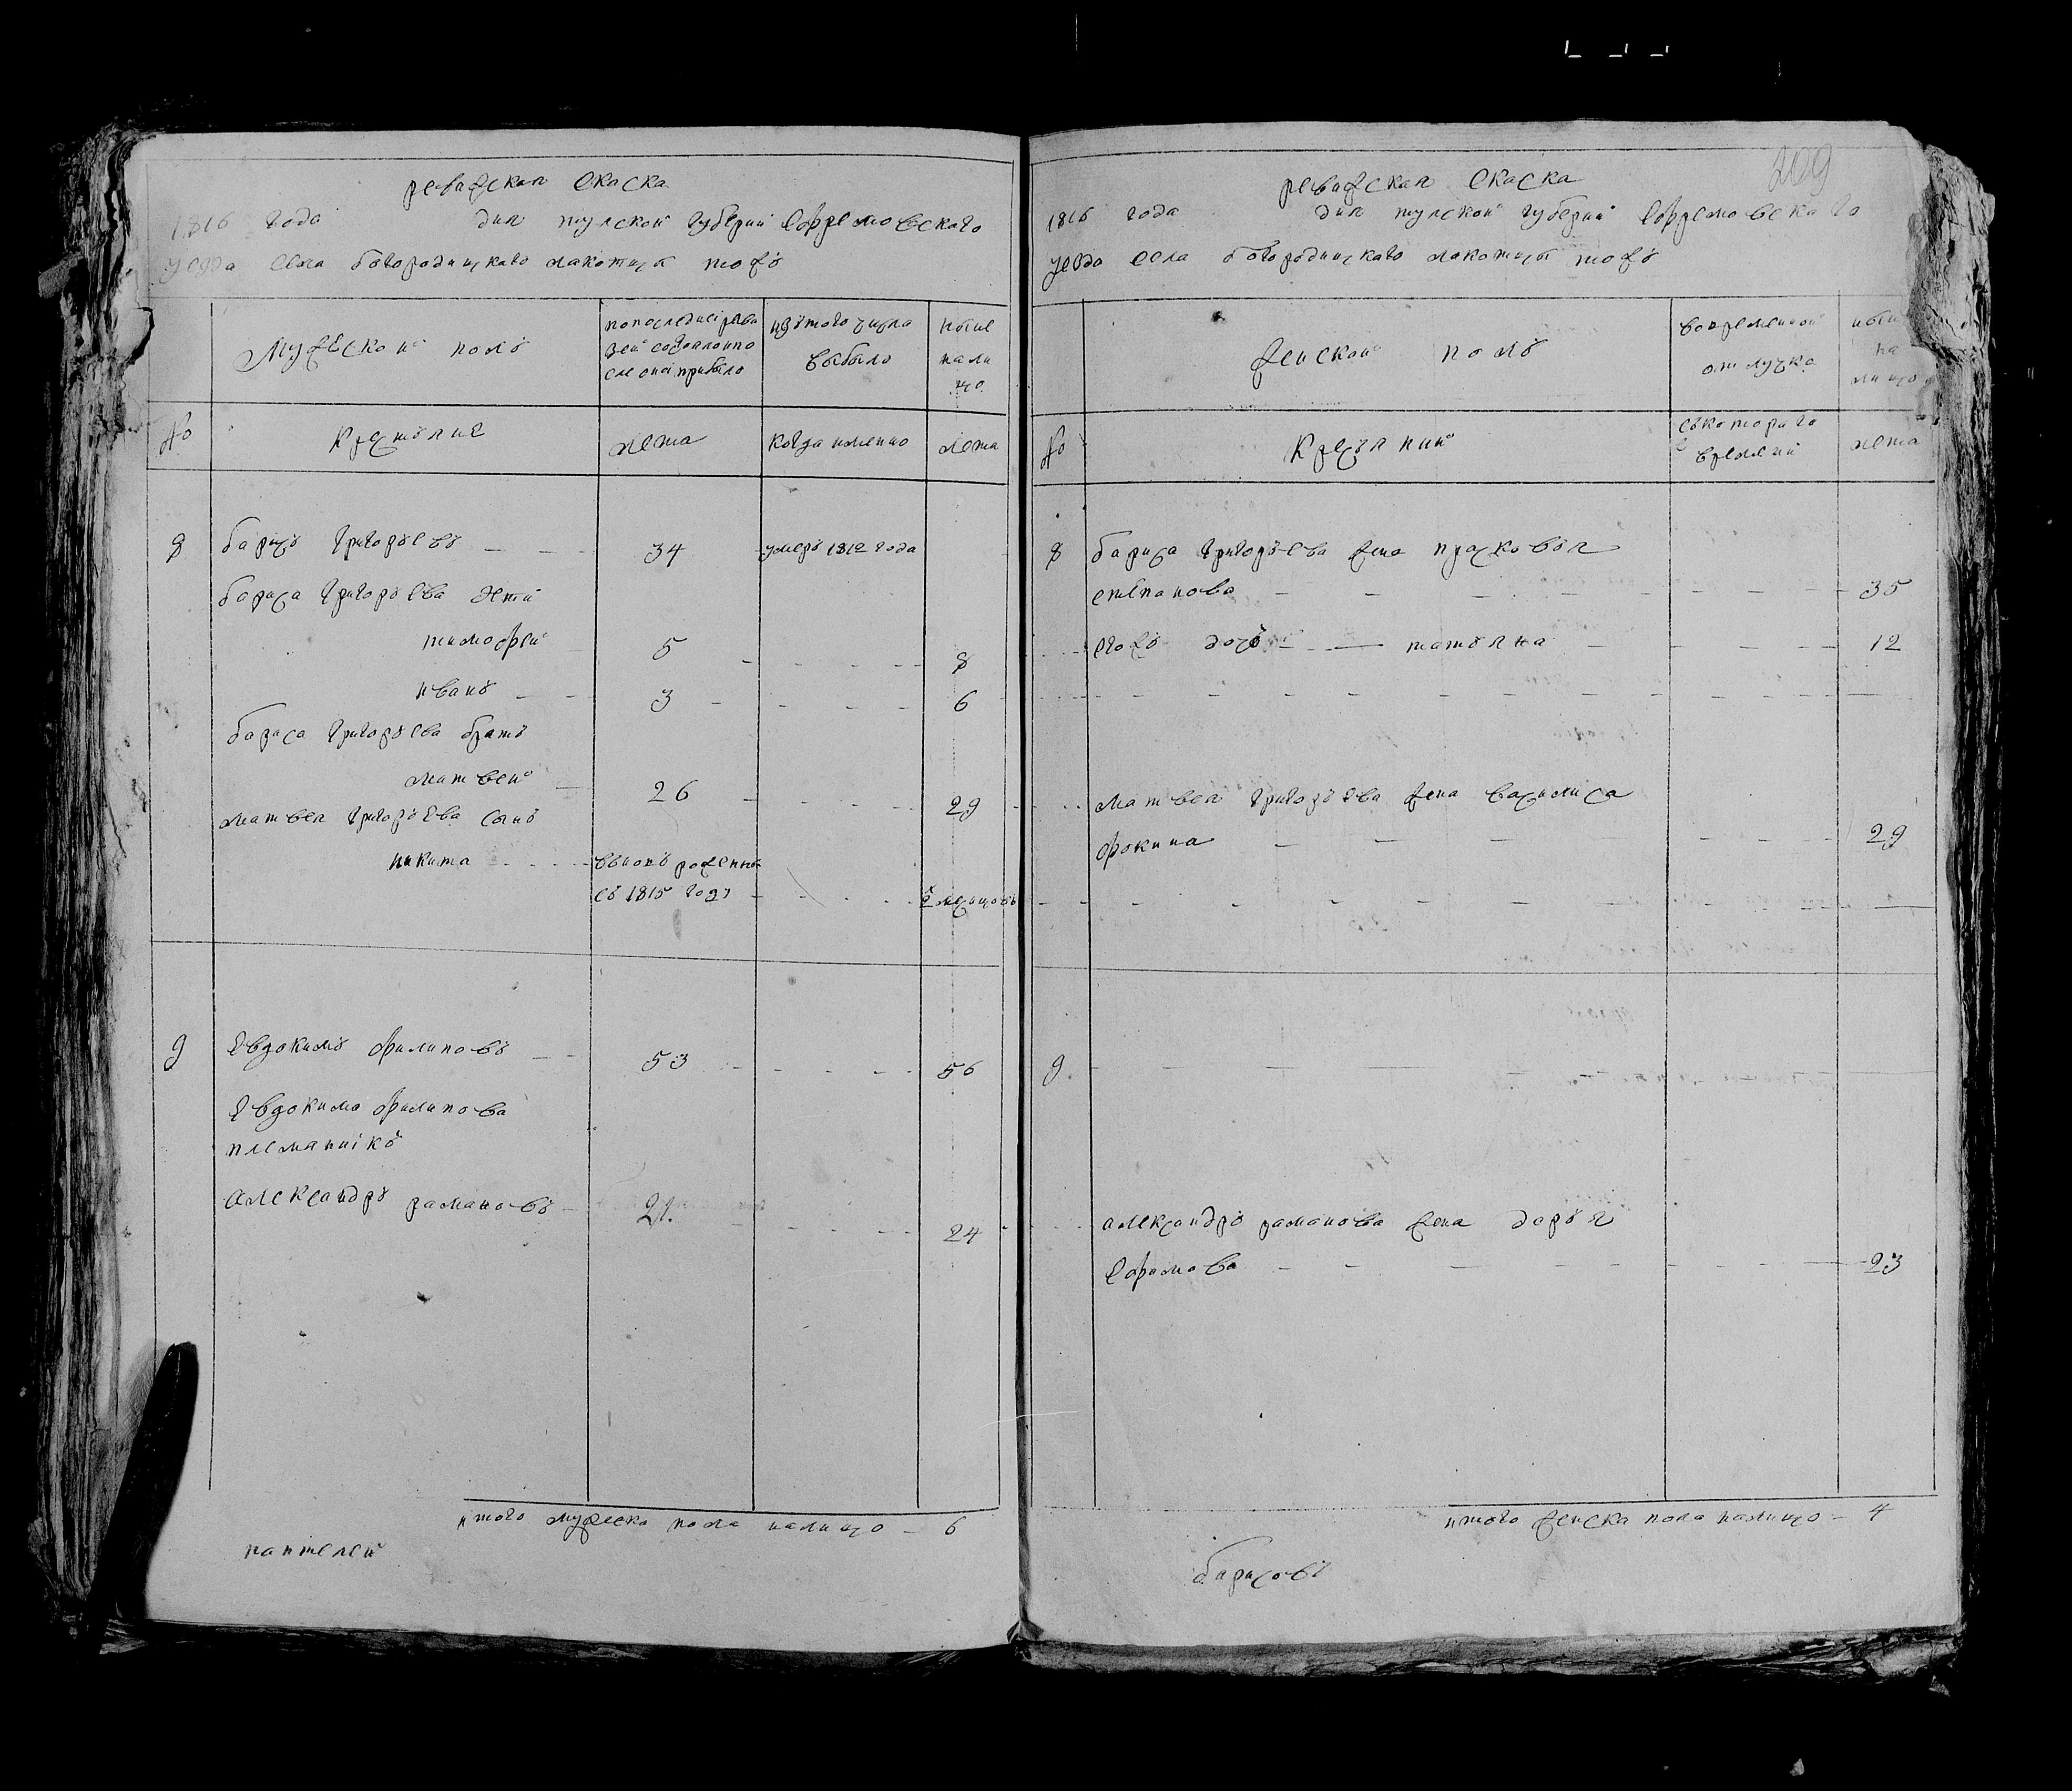 ревижская скаска
1816 года дня тулской губернии ефремовскаго
уезда села богородицкаво лакотцы тожъ
Мужескои полъ
попоследнеи реви
зеи состоялоипо
сле онои прибыло
изътого числа
выбыло
ныне
нали
цо
№
Крестьяне
лета
когда имянно
лета
8
барисъ григорьевъ
34
умеръ 1812 года
бариса григорьева дети
тимофеи
5
8
иванъ
3
6
бариса григорьева братъ
матвеи
26
29
матвея григорьева сынъ
никита
вновь роженны
съ 1815 году
месицовъ
9
Евдокимъ филиповъ
53
56
Евдокима филипова
племянникъ
Александръ рамановъ
21.
24
итого мужеска пола налицо 6
пантелеи
209
ревижская скаска
1816 года дня тулской губернии ефремовскаго
уезда села богородицкаво лакотцы тожъ
женскои полъ
вовременнои
отлучке
ныне
на
лицо
№
Крестьянии
скотораго
времени
лета
8
бариса григорьева жена прасковья
степанова
35
егожъ дочь татьяна
12
матвея григорьева жена василиса
фокина
29
9.
александръ раманова жена дарья
Ефимова
23
итого женска пола налицо 4
барисовъ